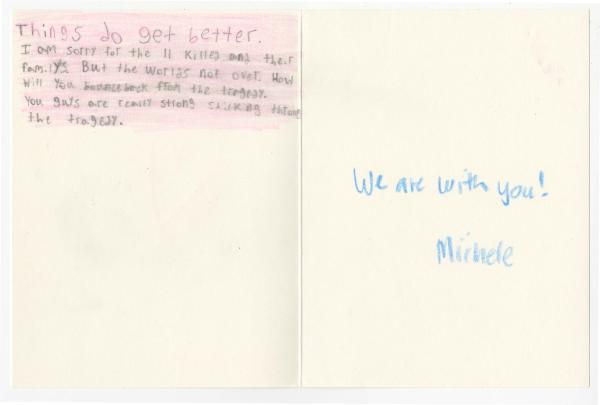 Things do get better.
I am sorry for the 11 killed and their
family's But the worlds not over. How
will you bounce back from the tragedy.
You guys are really strong sticking throug
the tragedy.
We are with you!
Michele